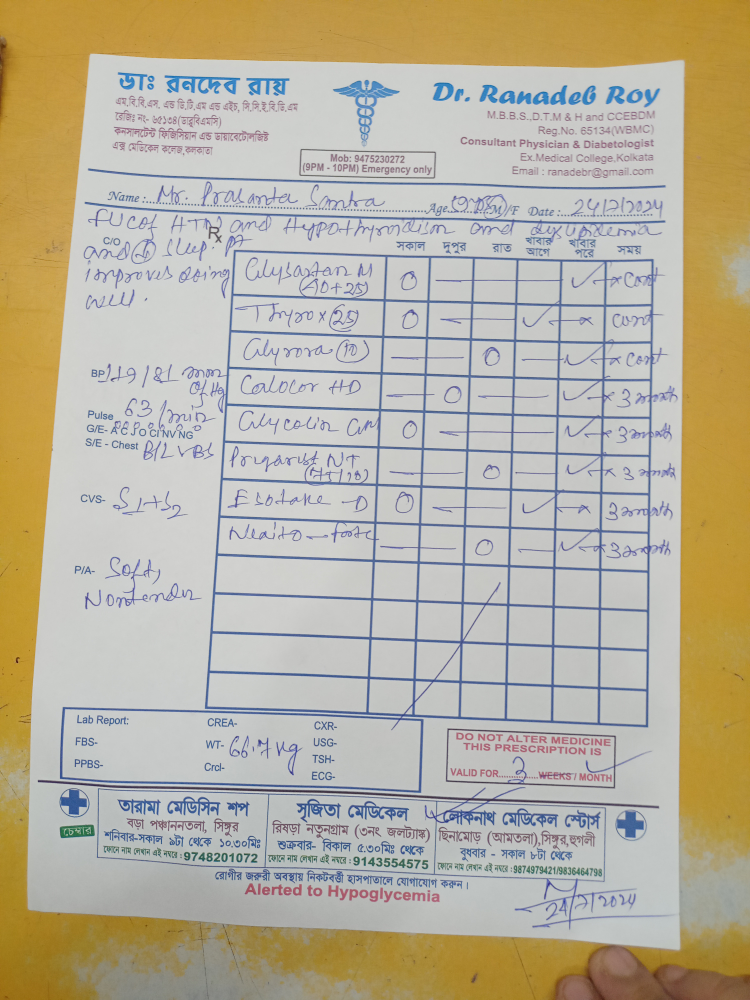 ডাঃ রনদেব রায়
এম,বি,বি,এস, এন্ড ডি,টি,এম এন্ড এইচ, সি,সি,ই,বি,ডি,এম
রেজিঃ নং- ৬৫১৩৪(ডাব্লুবিএমসি)
কনসালটেন্ট ফিজিসিয়ান এন্ড ডায়াবেটোলজিষ্ট
এক্স মেডিকেল কলেজ,কলকাতা
Mob: 9475230272
(9PM - 10PM) Emergency only
Dr. Ranadeb Roy
M.B.B.S.,D.T.M & H and CCEBDM
Reg.No. 65134(WBMC)
Consultant Physician & Diabetologist
Ex.Medical College,Kolkata
Email : ranadebr@gmail.com
Name : Mr. Prasanta Santra Age M/F Date : 24/7/2024
F/U C of HTN and Hypothyroidism and dyslipidemia
C/O and sleep. PT
improves doing
well.
Rx
সকাল দুপুর রাত খাবার আগে খাবার পরে সময়
Glysartan M (40+25) O — — ✓ × cont
Thyrox (25) O — ✓ — × cont
Glyrova (10) — O — ✓ × cont
Calocor HD — O — ✓ × 3 month
Glycolin O — ✓ × 3 month
NT — O — ✓ × 3 month
Esotake-D O — — ✓ × 3 month
forte — O — ✓ × 3 month
BP 119/81 mm of Hg
Pulse 63/min
G/E- A C J O CI NV NG
S/E - Chest B/L VBS
CVS- S1+S2
P/A- Soft,
Nontender
Lab Report: CREA- CXR-
FBS- WT- 66.7 kg USG-
PPBS- Crcl- TSH-
ECG-
DO NOT ALTER MEDICINE
THIS PRESCRIPTION IS
VALID FOR 3 WEEKS / MONTH
চেম্বার
তারামা মেডিসিন শপ
বড়া পঞ্চাননতলা, সিঙ্গুর
শনিবার-সকাল ৯টা থেকে ১০.৩০মিঃ
ফোনে নাম লেখান এই নম্বরে : 9748201072
সৃজিতা মেডিকেল
রিষড়া নতুনগ্রাম (৩নং জলট্যাঙ্ক)
শুক্রবার- বিকাল ৫.৩০মিঃ থেকে
ফোনে নাম লেখান এই নম্বরে : 9143554575
লোকনাথ মেডিকেল স্টোর্স
ছিনামোড় (আমতলা),সিঙ্গুর,হুগলী
বুধবার - সকাল ৮টা থেকে
ফোনে নাম লেখান এই নম্বরে : 9874979421/9836464798
রোগীর জরুরী অবস্থায় নিকটবর্তী হাসপাতালে যোগাযোগ করুন।
Alerted to Hypoglycemia
24/7/2024